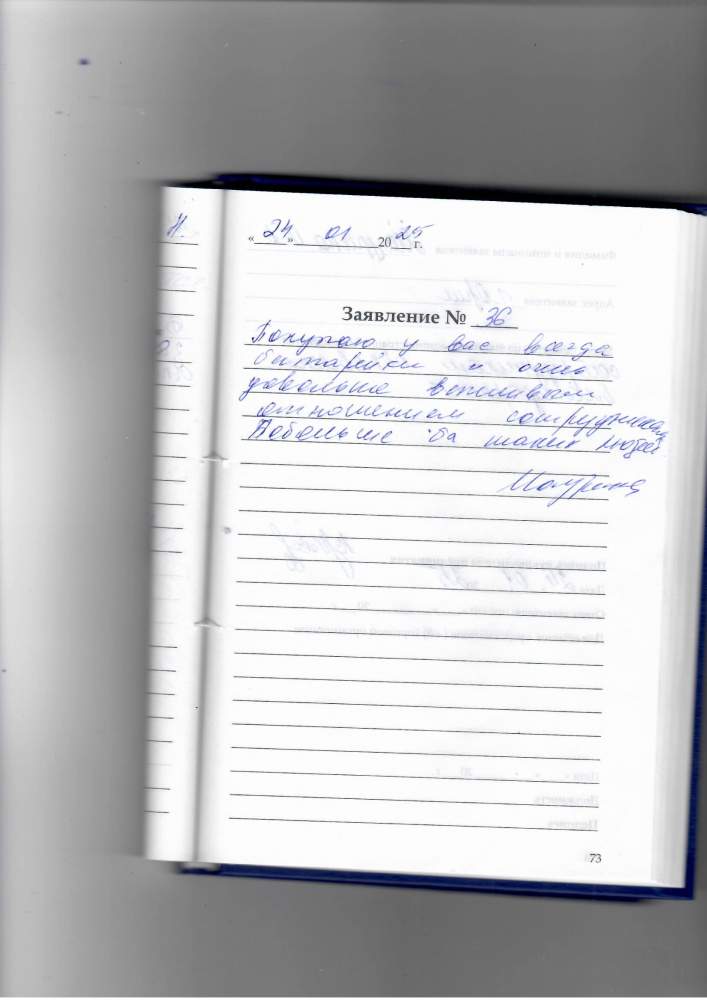 « 24 » 01 20 25 г.
Заявление № 36
Покупаю у вас всегда
батарейки и очень
довольна вежливым
отношением сотрудников
Побольше бы таких людей
73